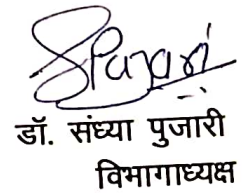 SPujari
डॉ. संध्या पुजारी
विभागाध्यक्ष